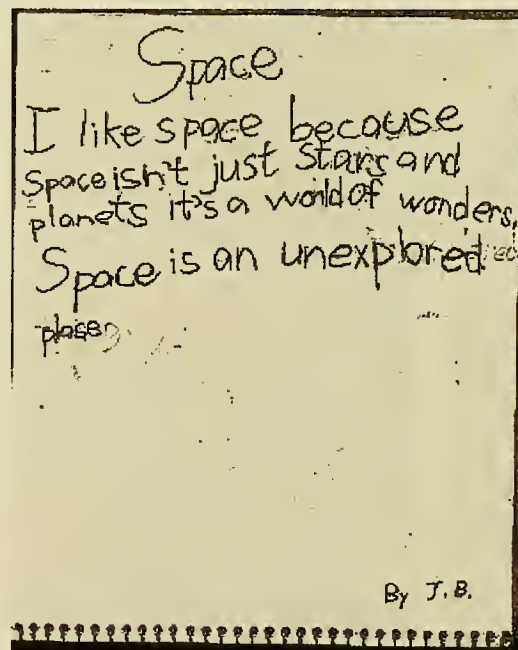 Space
I like space because
space isn't just stars and
planets it's a world of wonders.
Space is an unexplored
plase
By J.B.